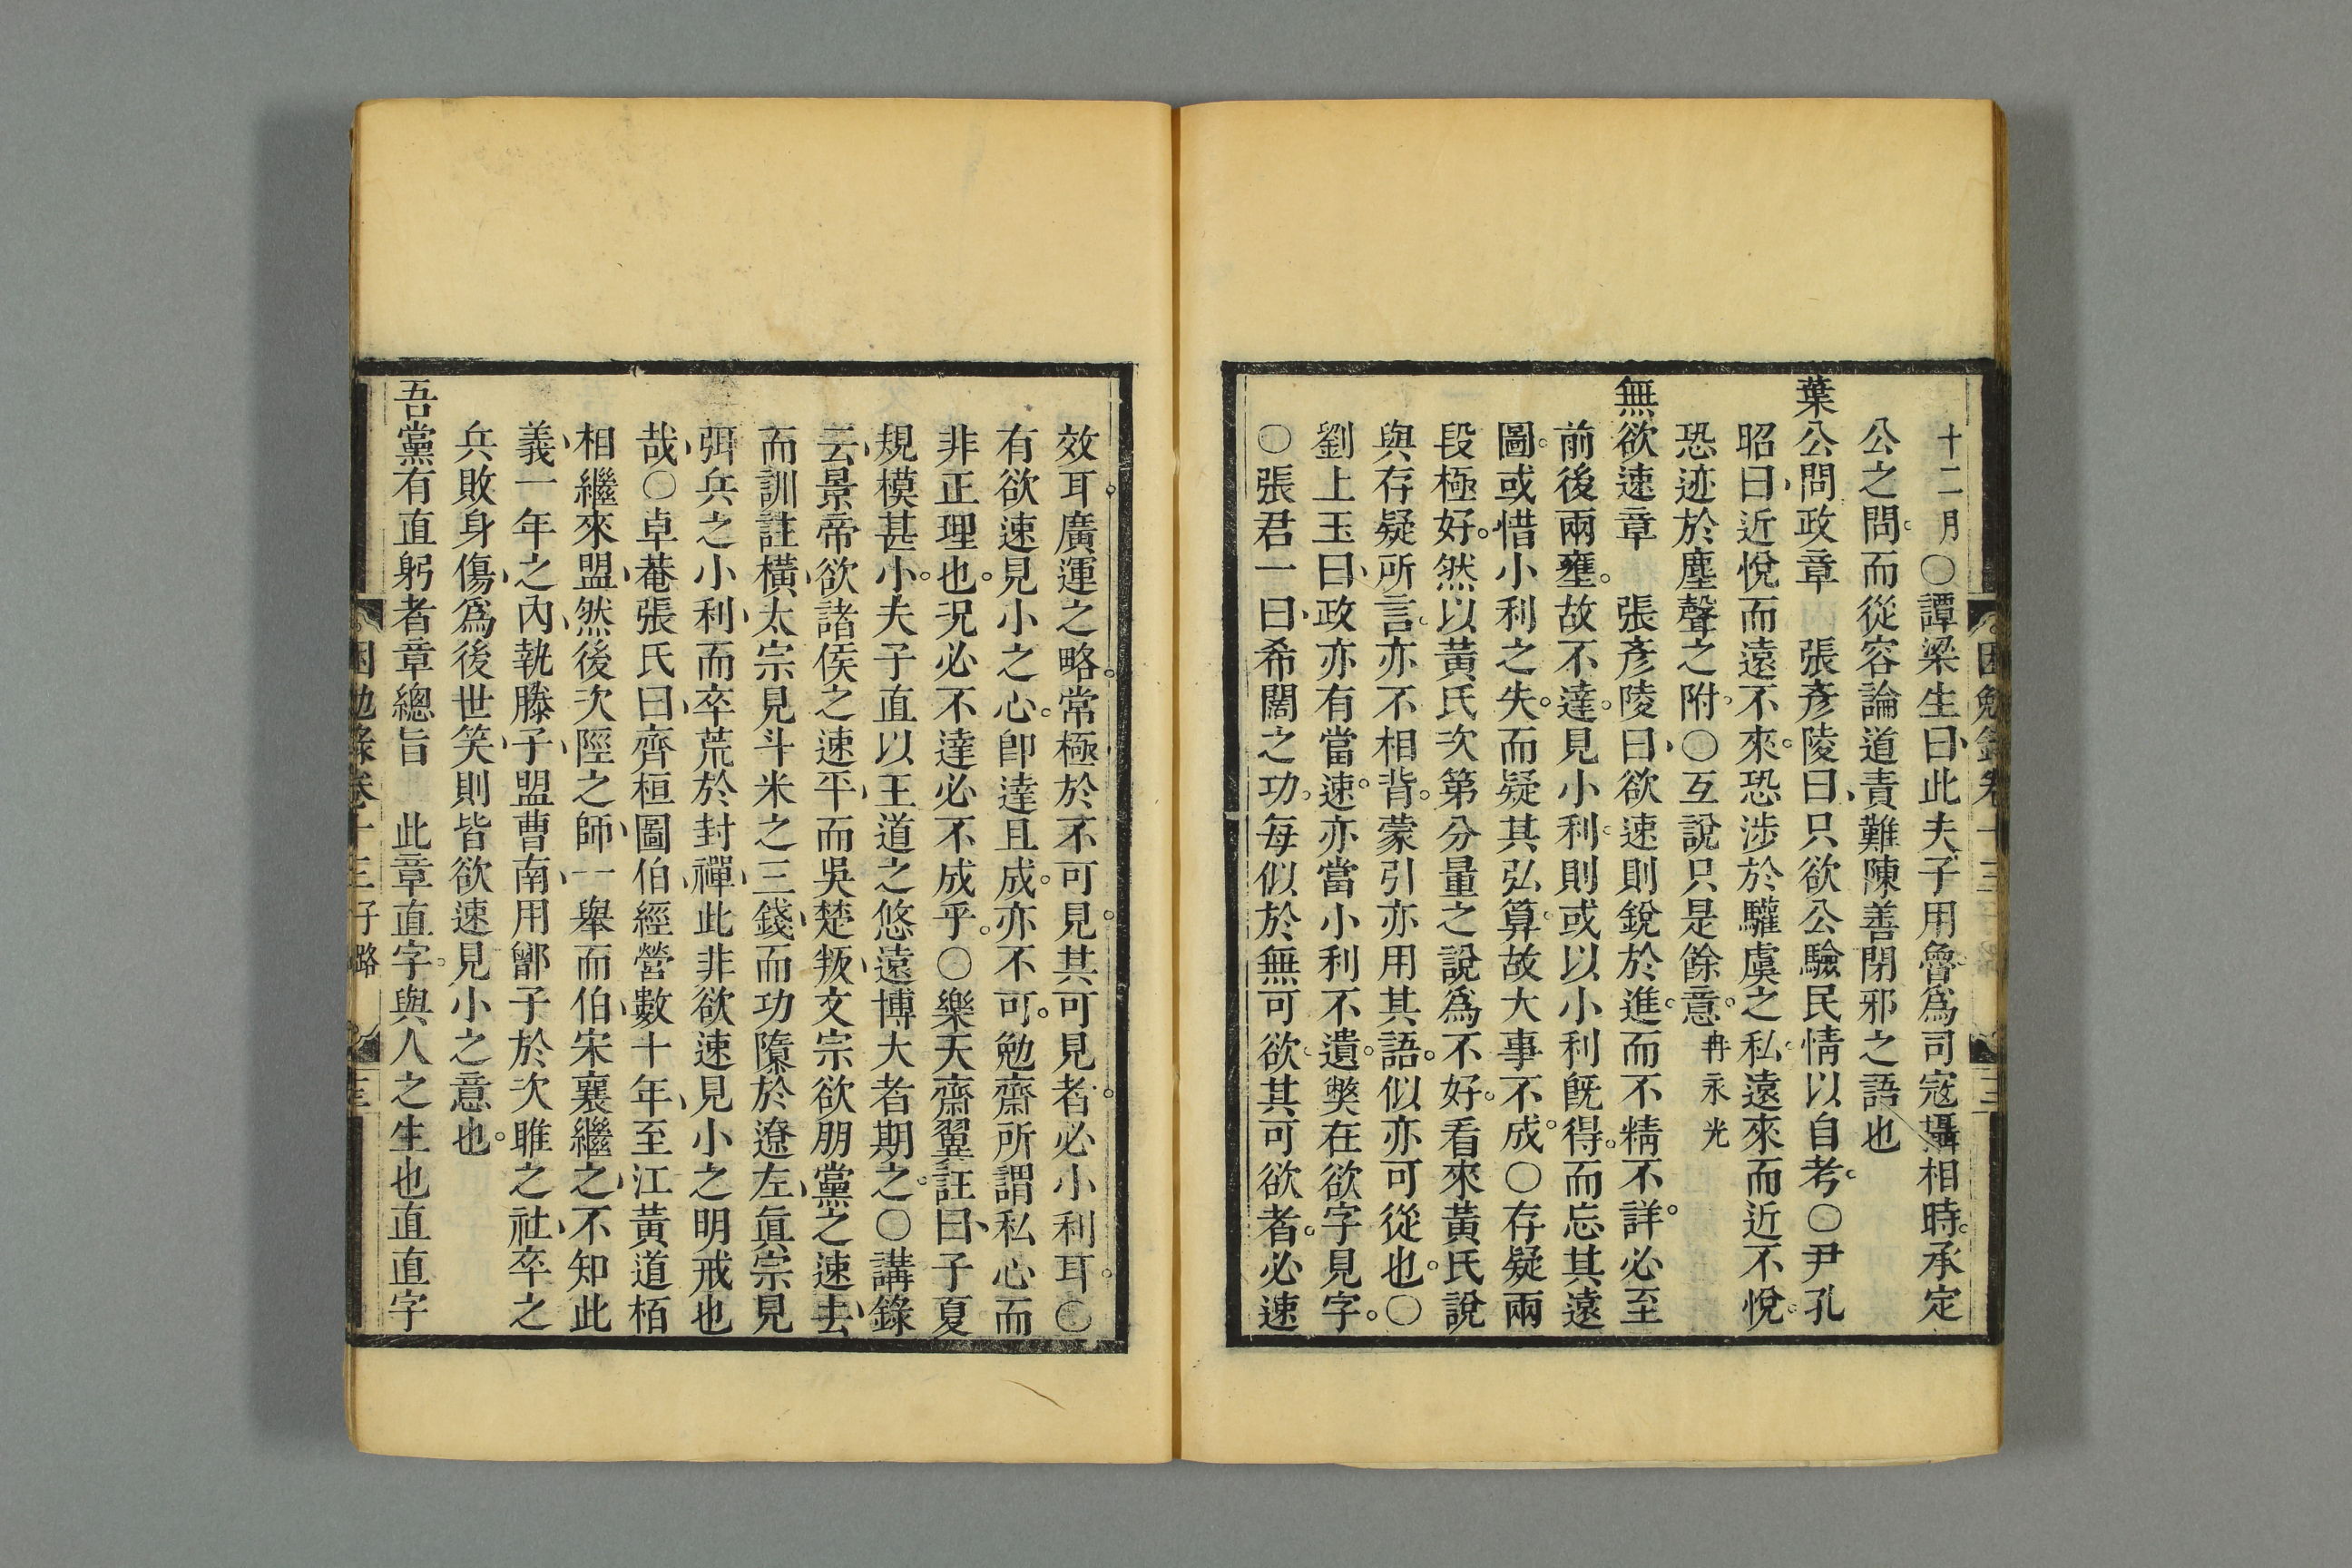 十二月○譚梁生曰此夫子用魯爲司寇攝相時承定
公之問而從容論道責難陳善閉邪之語也
葉公問政章　張彥陵曰只欲公驗民情以自考○尹孔
昭曰近悅而遠不來恐涉於驩虞之私遠來而近不悅
恐迹於塵聲之附○互說只是餘意冉永光
無欲速章　張彥陵曰欲速則銳於進而不精不詳必至
前後兩壅故不達見小利則或以小利旣得而忘其遠
圖或惜小利之失而疑其弘算故大事不成○存疑兩
段極好然以黃氏次第分量之說爲不好看來黃氏說
與存疑所言亦不相背蒙引亦用其語似亦可從也○
劉上玉曰政亦有當速亦當小利不遺獘在欲字見字
○張君一曰希闊之功每似於無可欲其可欲者必速
效耳廣運之略常極於不可見其可見者必小利耳○
有欲速見小之心卽達且成亦不可勉齋所謂私心而
非正理也况必不達必不成乎○樂天齋翼註曰子夏
規模甚小夫子直以王道之悠遠博大者期之○講錄
云景帝欲諸侯之速平而吳楚叛文宗欲朋黨之速去
而訓註橫太宗見斗米之三錢而功隳於遼左眞宗見
弭兵之小利而卒荒於封禪此非欲速見小之明戒也
哉○卓菴張氏曰齊桓圖伯經營數十年至江黃道栢
相繼來盟然後次陘之師一舉而伯宋襄繼之不知此
義一年之內執滕子盟曹南用鄫子於次睢之社卒之
兵敗身傷爲後世笑則皆欲速見小之意也
吾黨有直躬者章總旨　此章直字與人之生也直直字
困勉錄卷十三子路　三